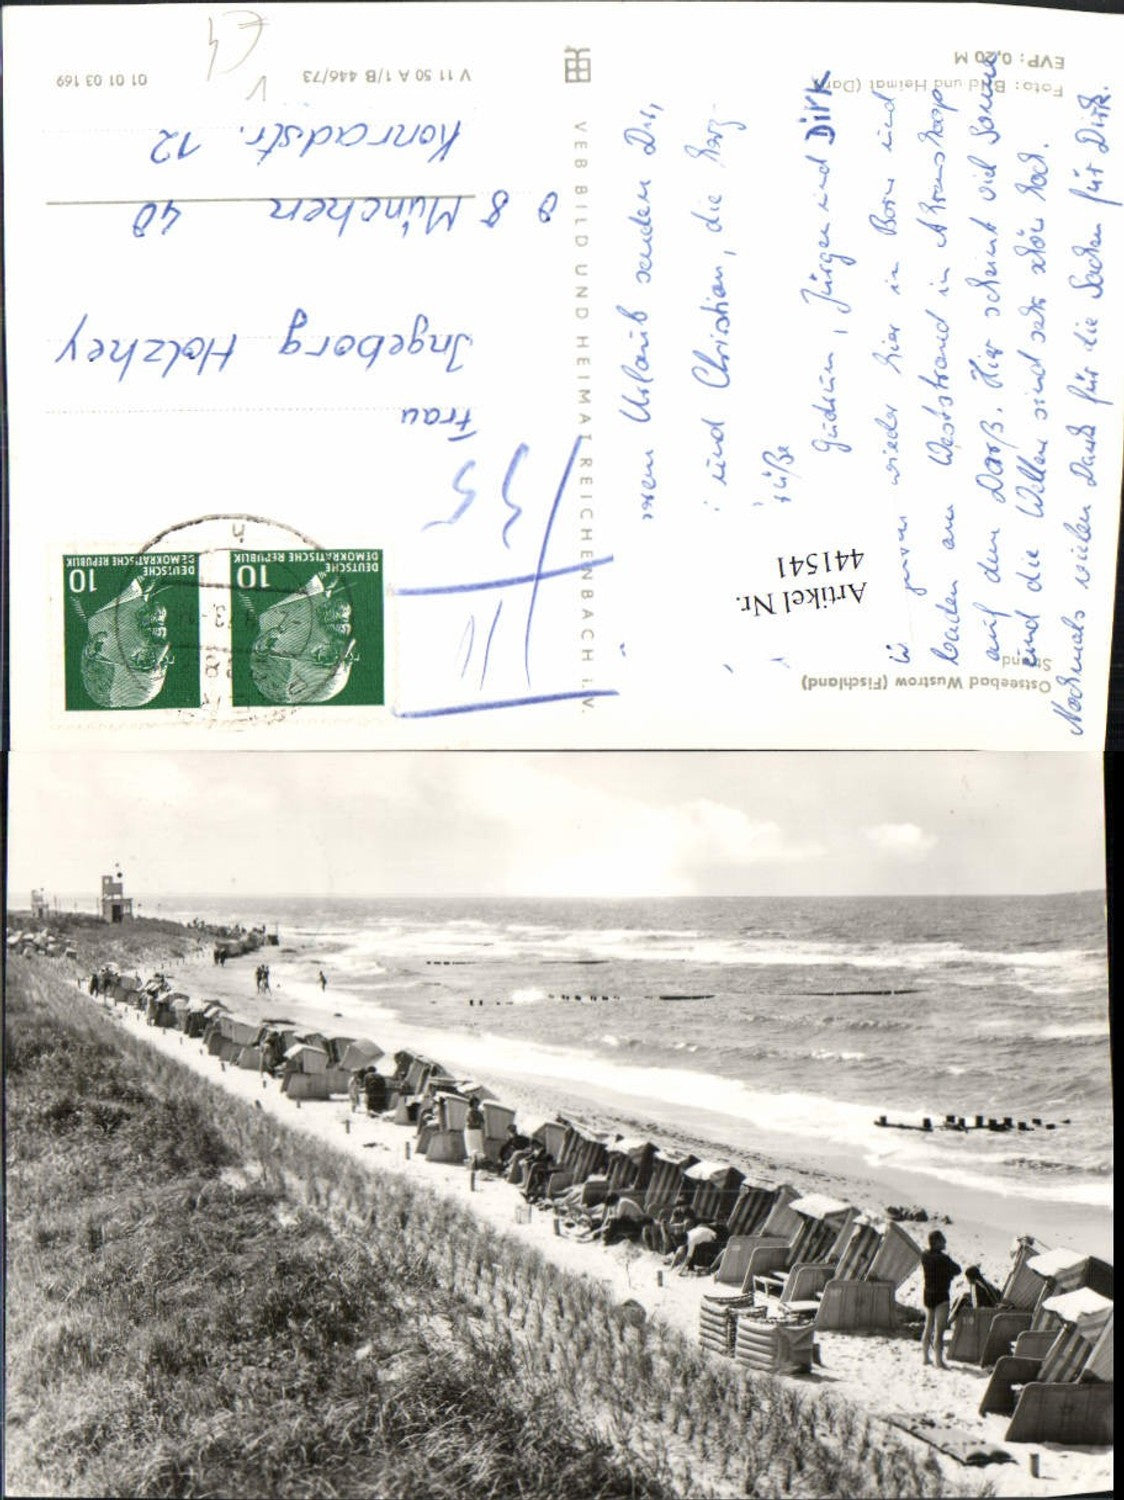 Ostseebad Wustrow (Fischland)
Strand
Artikel Nr.
441541
Foto: Bild und Heimat
EVP: 0,20 M
VEB BILD UND HEIMAT REICHENBACH I. V.
V 11 50 A 1/B 446/73
01 01 03 169
DEUTSCHE
DEMOKRATISCHE REPUBLIK
10
DEUTSCHE
DEMOKRATISCHE REPUBLIK
10
Frau
Ingeborg Holzhey
8 München 40
Konradstr. 12
Urlaub senden Dir,
und Christian, die herz-
Grüße
Gudrun, Jürgen und Dirk
wieder hier in Born und
baden am Weststrand in Ahrenshoop
auf dem Darß. Hier scheint viel Sonne
und die Wellen sind sehr schön hoch.
Nochmals vielen Dank für die Sachen für Dirk.